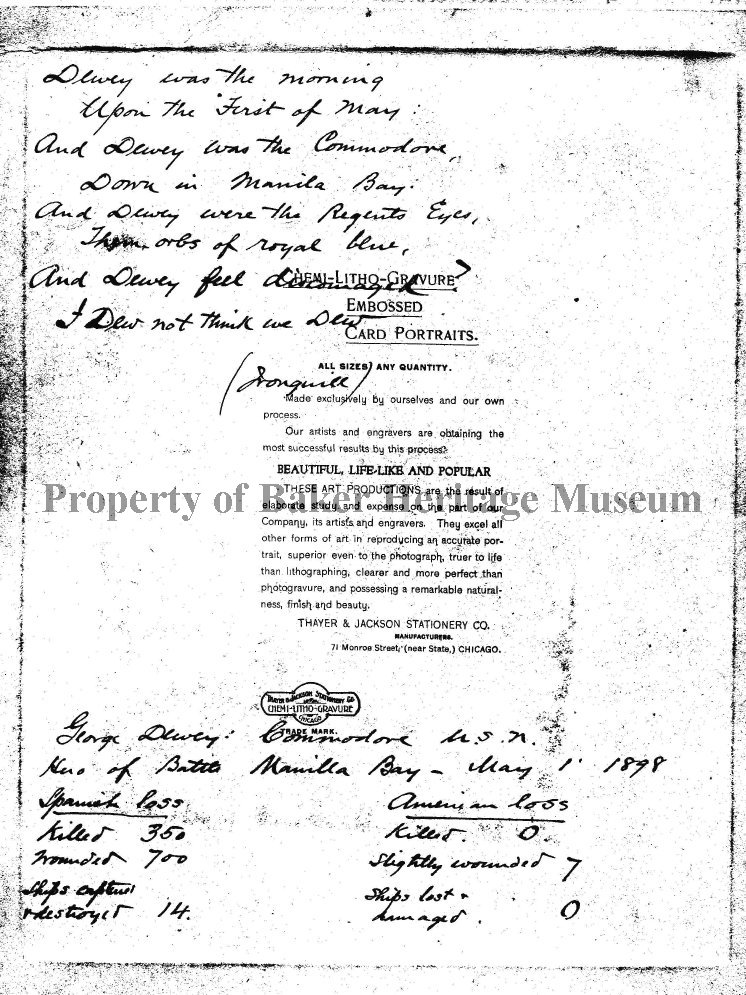 Dewey was the morning
Upon the First of May:
And Dewey was the Commodore,
Down in Manila Bay:
And Dewey were the Regents Eyes,
Them orbs of royal blue,
And Dewey feel discouraged?
I Dew not think we Dew
(Ironquill)
CHEMI-LITHO-GRAVURE
EMBOSSED
CARD PORTRAITS.
ALL SIZES, ANY QUANTITY.
Made exclusively by ourselves and our own
process.
Our artists and engravers are obtaining the
most successful results by this process.
BEAUTIFUL, LIFE-LIKE AND POPULAR
THESE ART PRODUCTIONS are the result of
Property of Baker Heritage Museum
elaborate study and expense on the part of our
Company, its artists and engravers. They excel all
other forms of art in reproducing an accurate por-
trait, superior even to the photograph, truer to life
than lithographing, clearer and more perfect than
photogravure, and possessing a remarkable natural-
ness, finish and beauty.
THAYER & JACKSON STATIONERY CO.
MANUFACTURERS.
71 Monroe Street, (near State,) CHICAGO.
THAYER & JACKSON STATIONERY CO.
CHEMI-LITHO-GRAVURE
CHICAGO
TRADE MARK.
George Dewey: Commodore U.S.N.
Hero of Battle Manilla Bay - May 1 1898
Spanish loss
Killed 350
Wounded 700
Ships captured
& destroyed 14.
American loss
Killed. 0.
Slightly wounded 7
Ships lost &
damaged. 0